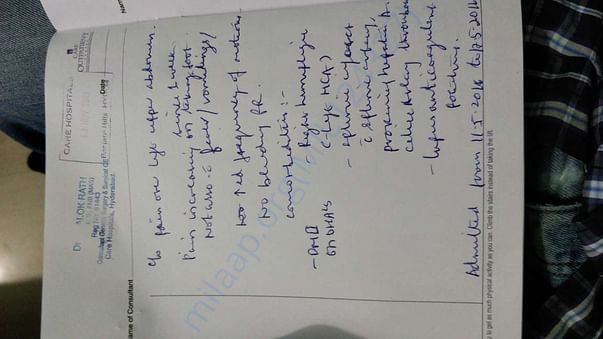 CARE HOSPITALS
OUTPATIENT
Date
Dr ALOK RATH
Reg No. 51443
Consultant General Surgery & Surgical
Care Hospitals, Hyderabad.
Name of Consultant
c/o pain over left upper abdomen
since 2 weeks
Pain increasing on taking food
Not asso c fever/vomitings/
No ↑ed frequency of motions
No bleeding PR.
comorbidities:-
Right hemiplegia
(- Left MCA)
- splenic infarct
c splenic artery,
proximal hepatic A.
celiac artery thrombus
- Lupus anticoagulant
positive.
Admitted from 11.5.2016 to 17.5.2016
milaap.org
y to get as much physical activity as you can. Climb the stairs instead of taking the lift.